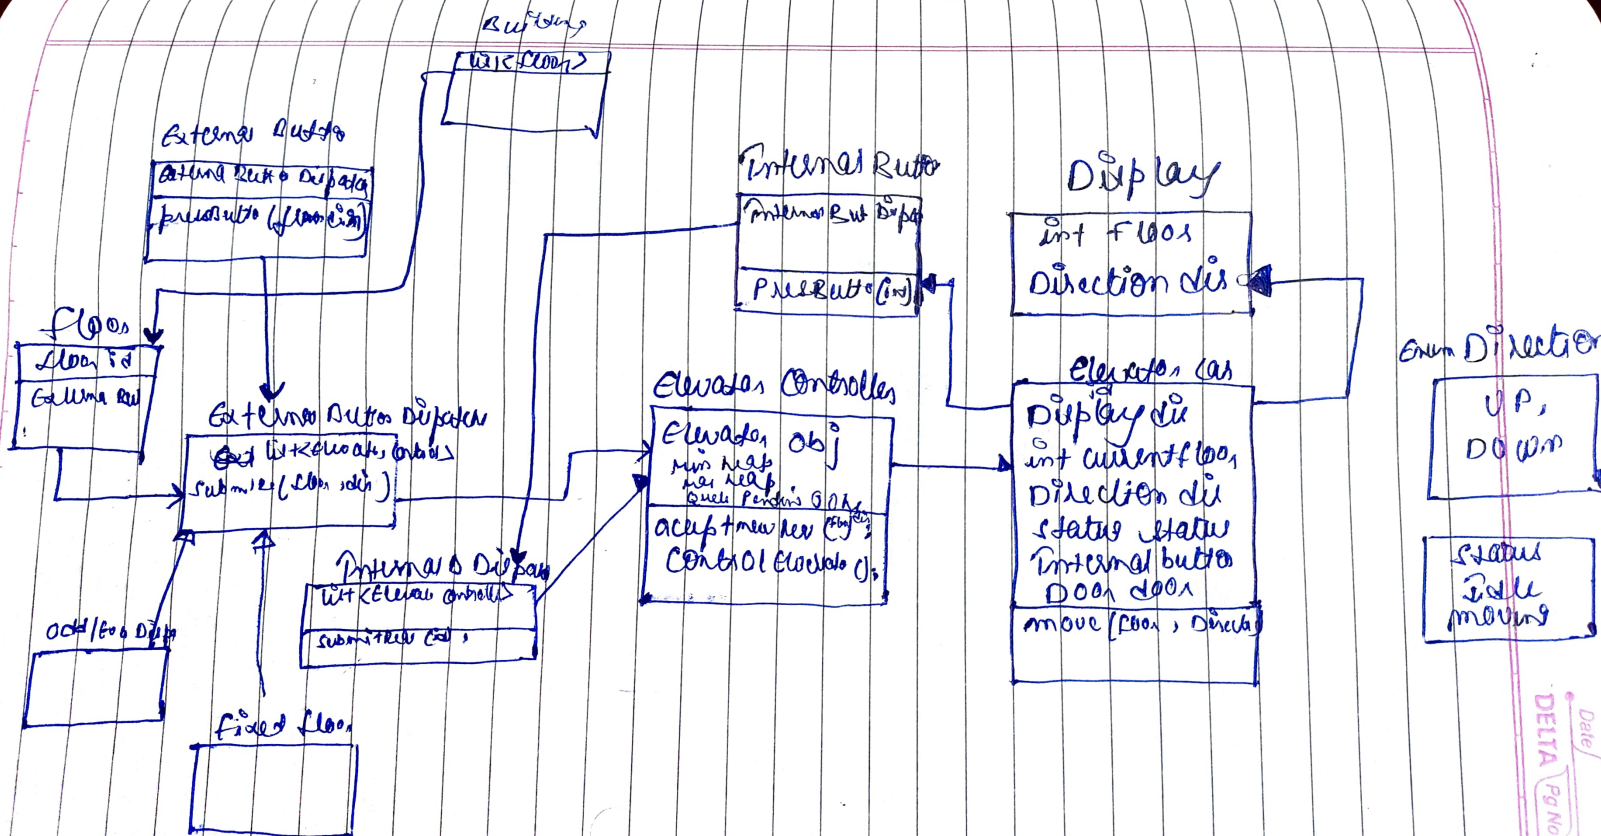 Building
List<floor>
External Butto
External Butto Dispatcher
pressButto(floor, dir)
Internal Butto
Internal But Dispa
PressButto(int)
Display
int floor
Direction dir
Floor
floor id
External But
External Button Dispatcher
List<Elevator Controls>
submit (floor, dir)
Elevator Controller
Elevator obj
min heap
max heap
Queue Pending
accept new req (floor, dir);
Control Elevator ();
Elevator Car
Display dis
int current floor
Direction dir
Status status
Internal button
Door door
move (floor, Direction)
Enum Direction
UP,
DOWN
Status
Idle
moving
Internal B Dispa
List<Elevator Controlle>
submit Req (id);
Odd/Even Disp
Fixed floor
Date/
DELTA Pg No